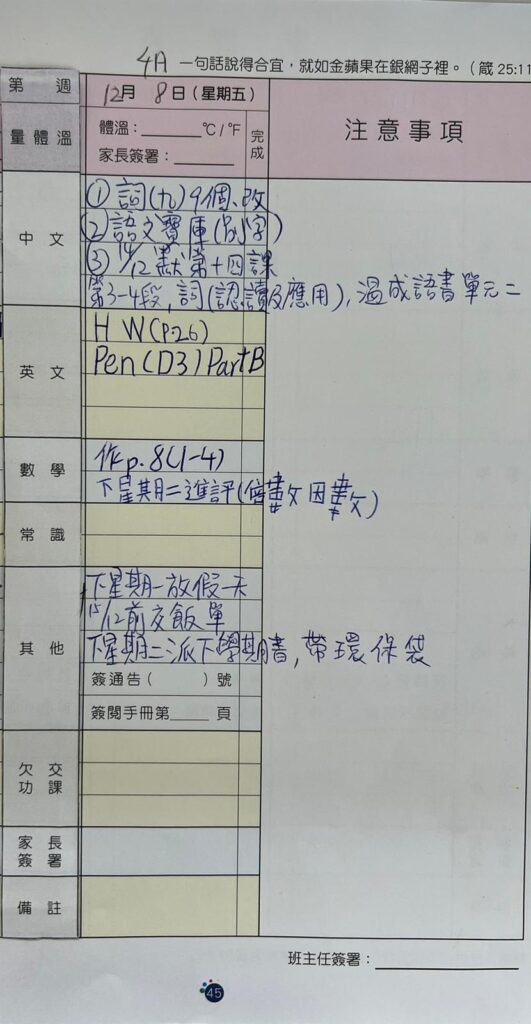 4A 一句話說得合宜，就如金蘋果在銀網子裡。(箴 25:11
第 週 12月 8日(星期五) 注意事項
量體溫 體溫：______°C/°F 完成
家長簽署：______
中文 ①詞(九)9個、改
②語文寶庫(別字)
③14/12默第十四課
第3-4段,詞(認讀及應用),溫成語書單元二
英文 HW(P.26)
Pen(D3)PartB
數學 作p.8(1-4)
下星期二進評(倍數 因數)
常識
其他 下星期一放假一天
15/12前交飯單
下星期二派下學期書,帶環保袋
簽通告( )號
簽閱手冊第____頁
欠交功課
家長簽署
備註
班主任簽署：
45